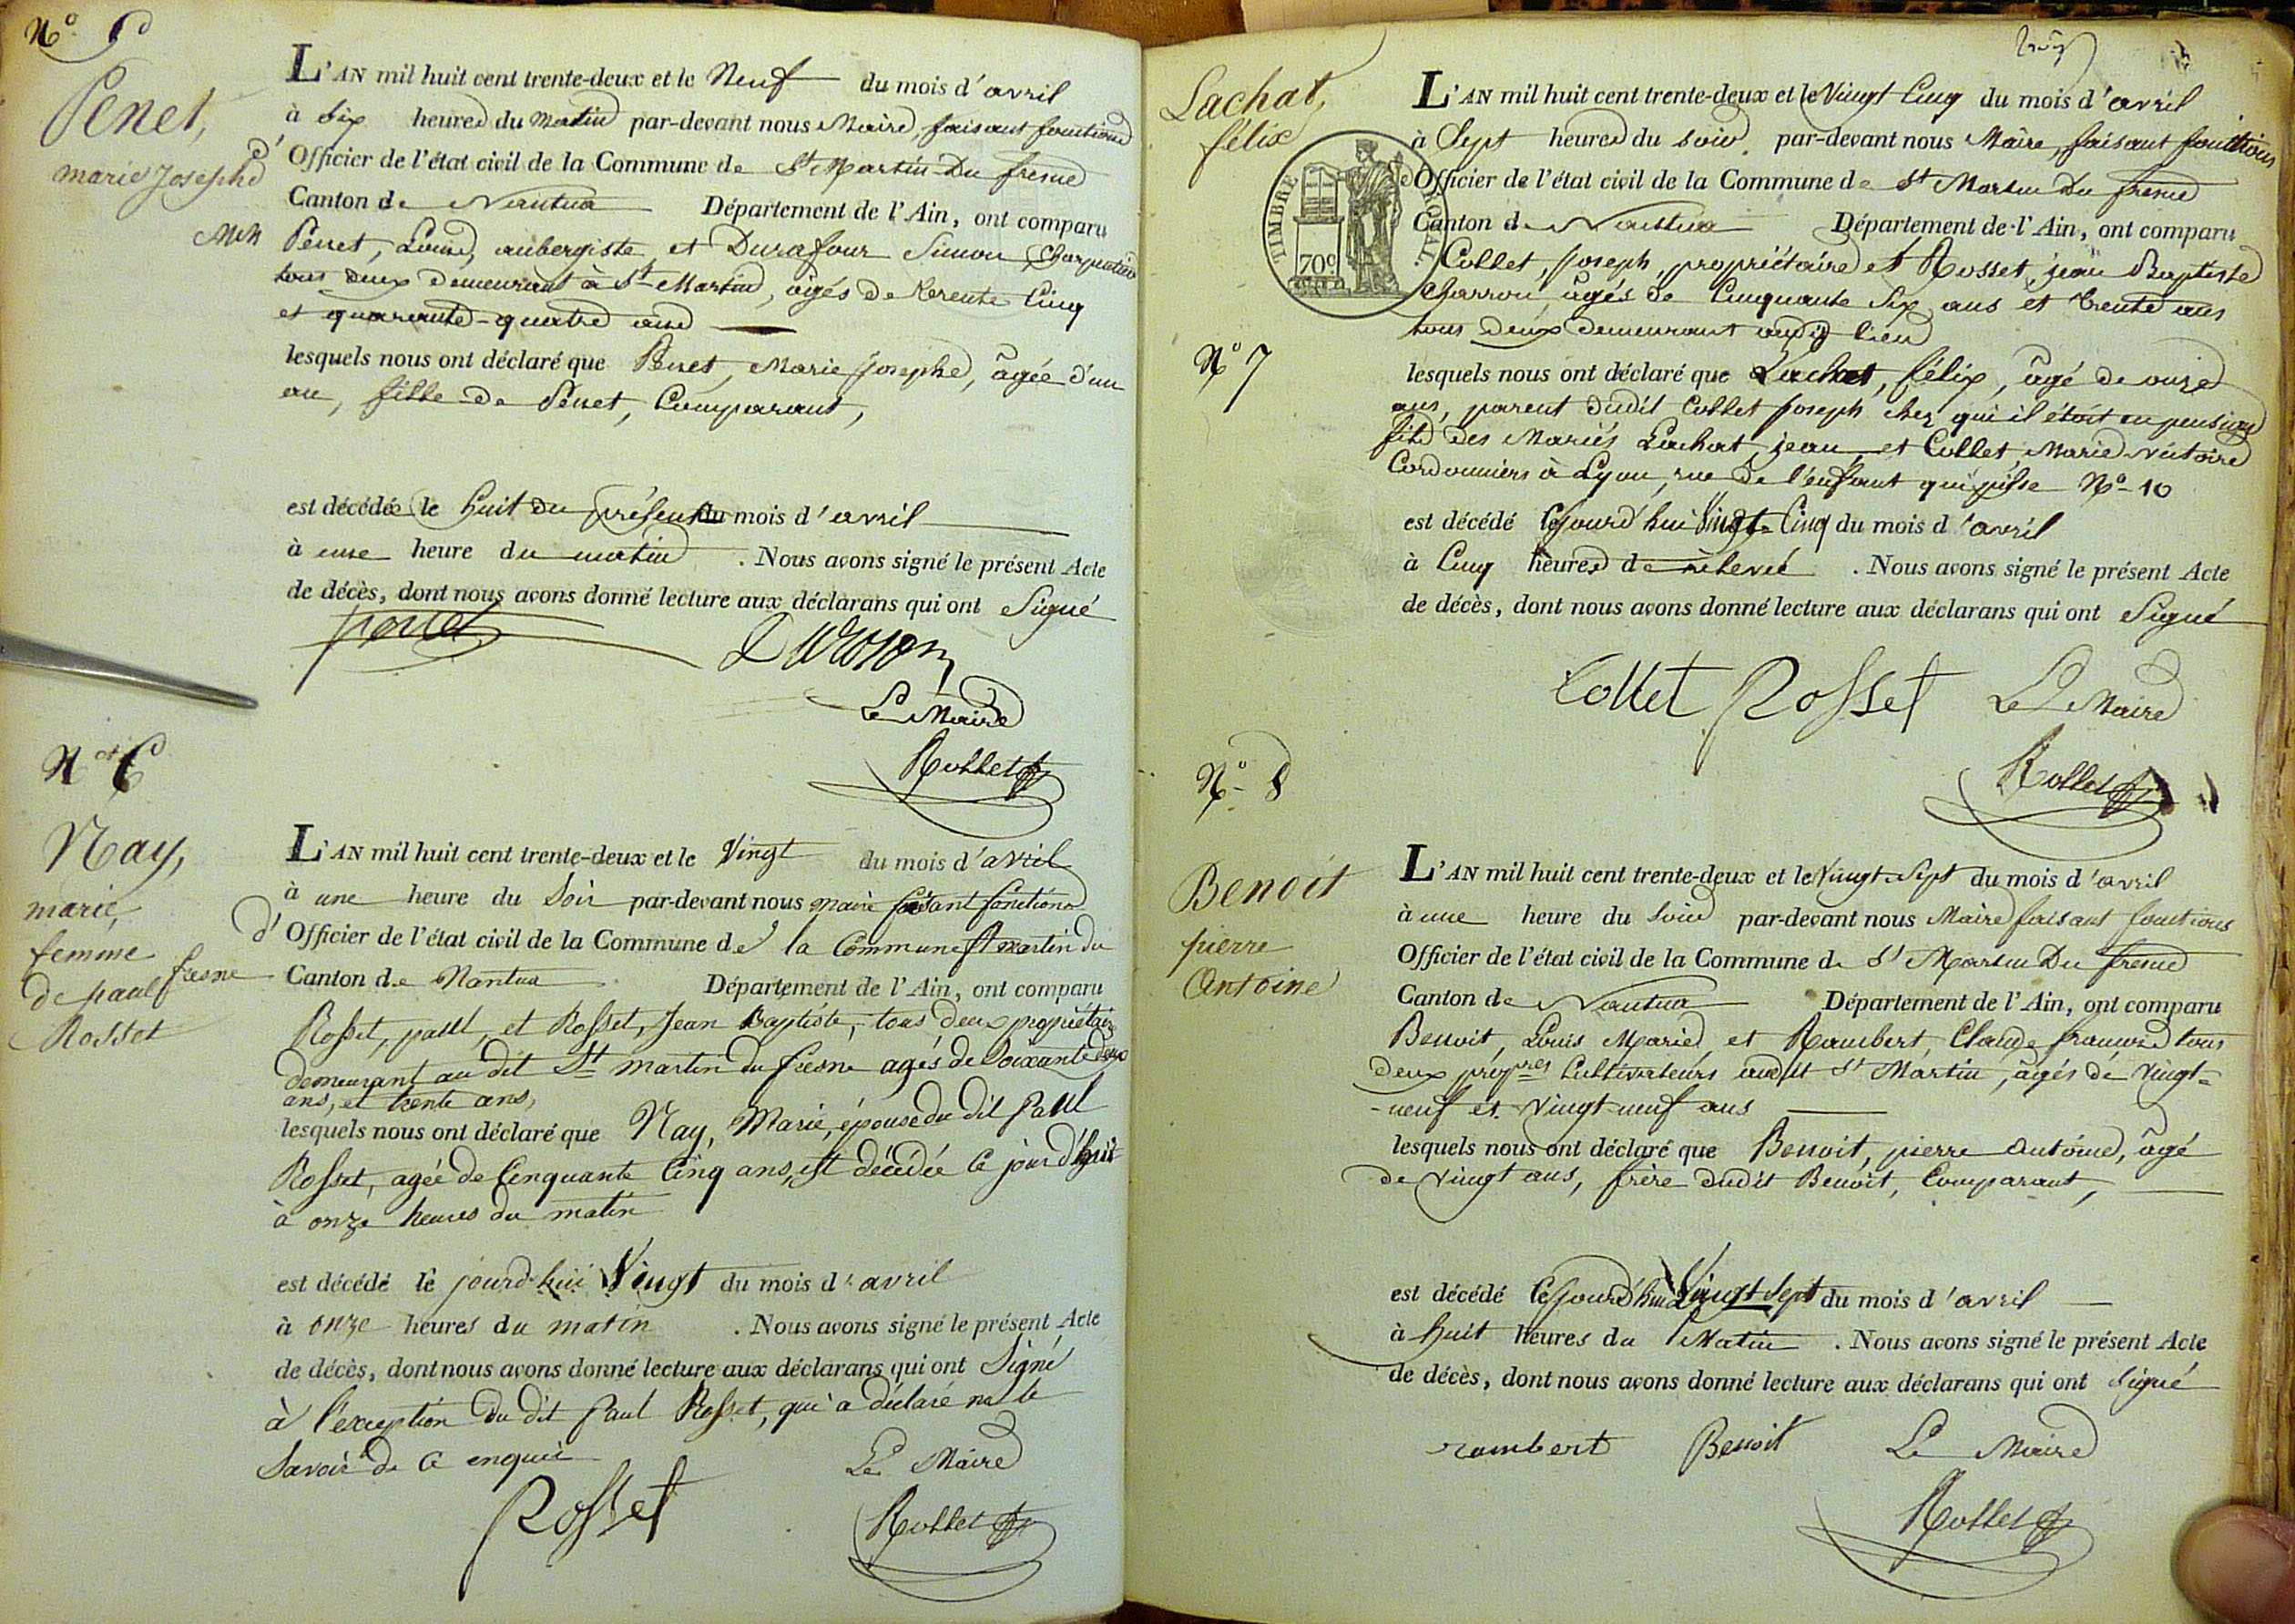 N° 5
Penet,
marie Josephe
L'AN mil huit cent trente-deux et le Neuf du mois d'avril
à Six heures du Matin par-devant nous Maire, faisant fonctions
d'Officier de l'état civil de la Commune de St Martin Du fresne
Canton de Nantua Département de l'Ain, ont comparu
Penet, Louis, aubergiste et Durafour Simon, Charpentier
tous deux demeurant à St Martin, âgés de trente Cinq
et quarante-quatre ans
lesquels nous ont déclaré que Penet, Marie Josephe, âgée d'un
an, fille de Penet, Comparant,
est décédée le huit du présent du mois d'avril
à une heure du matin. Nous avons signé le présent Acte
de décès, dont nous avons donné lecture aux déclarans qui ont Signé
Le Maire
Rollet
N° 6
Nay,
marie,
femme
de paul
Rosset
L'AN mil huit cent trente-deux et le Vingt du mois d'avril
à une heure du Soir par-devant nous maire faisant fonctions
d'Officier de l'état civil de la Commune de la Commune St martin du
fresne Canton de Nantua Département de l'Ain, ont comparu
Rosset, paul, et Rosset, Jean Baptiste, tous deux propriétaires
demeurant au dit St martin du fresne agés de Soixante deux
ans, et trente ans,
lesquels nous ont déclaré que Nay, Marie, épouse du dit Paul
Rosset, agée de Cinquante Cinq ans, est décédée ce jour d'huit
à onze heures du matin
est décédé le jourd'hui Vingt du mois d'avril
à onze heures du matin. Nous avons signé le présent Acte
de décès, dont nous avons donné lecture aux déclarans qui ont Signé
à l'exception du dit Paul Rosset, qui a déclaré ne le
Savoir de ce enquis
Le Maire
Rosset
Rollet
Lachat,
félix
TIMBRE ROYAL.
70c
N° 7
L'AN mil huit cent trente-deux et le Vingt Cinq du mois d'avril
à Sept heures du soir. par-devant nous Maire, faisant fonctions
d'Officier de l'état civil de la Commune de St Martin Du fresne
Canton de Nantua Département de l'Ain, ont comparu
Collet, Joseph, propriétaire et Rosset, jean Baptiste
Charron, âgés de Cinquante Six ans et trente ans
tous deux demeurant audit lieu
lesquels nous ont déclaré que Lachat, félix, âgé de onze
ans, parent dudit Collet Joseph chez qui il étoit en pension
fils des Mariés Lachat, jean, et Collet Marie Victoire
Cordonniers à Lyon, rue de l'enfant qui pisse N° 10
est décédé Cejourd'hui Vingt-Cinq du mois d'avril
à Cinq heures de relevée. Nous avons signé le présent Acte
de décès, dont nous avons donné lecture aux déclarans qui ont Signé
Collet Rosset Le Maire
Rollet
N° 8
Benoit
pierre
Antoine
L'AN mil huit cent trente-deux et le Vingt-Sept du mois d'avril
à une heure du Soir par-devant nous Maire faisant fonctions
Officier de l'état civil de la Commune de St Martin Du fresne
Canton de Nantua Département de l'Ain, ont comparu
Benoit, Louis Marie, et Rambert, Claude françois tous
deux propres Cultivateurs audit St Martin, âgés de vingt-
-neuf et vingt neuf ans
lesquels nous ont déclaré que Benoit, pierre Antoine, âgé
de vingt ans, frère dudit Benoit, Comparant,
est décédé Cejourd'hui Vingt Sept du mois d'avril
à huit heures du Matin. Nous avons signé le présent Acte
de décès, dont nous avons donné lecture aux déclarans qui ont Signé
rambert Benoit Le Maire
Rollet